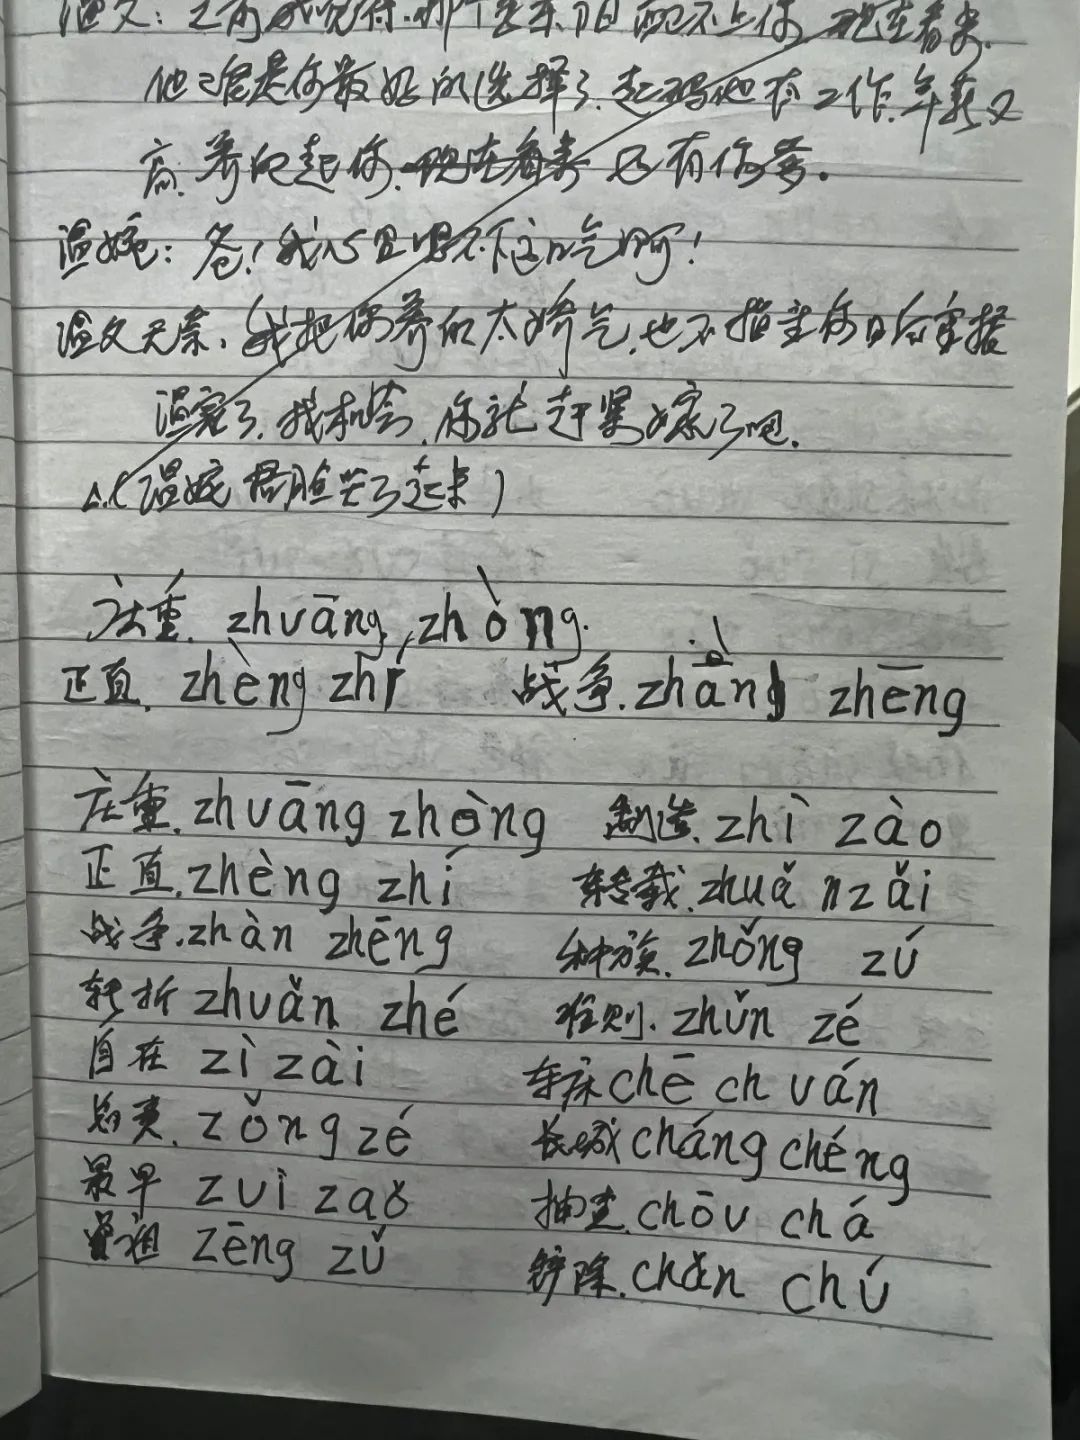 温父：之前我觉得，那个 配不上你，现在看来，
他已经是你最好的选择了，起码他有工作，年薪又
高，养的起你，现在看来 只有你爹。
温婉：爸！我心里咽不下这口气啊！
温父无奈，我把你养的太娇气，也不指望你日后掌握
温家了，找机会，你就赶紧嫁了吧。
△（温婉 捂脸哭了起来）
庄重，zhuāng，zhòng.
正直，zhèng zhí 战争，zhàng zhēng
庄重，zhuāng zhòng 制造，zhì zào
正直，zhèng zhí 转载，zhuǎn zǎi
战争，zhàn zhēng 种族，zhǒng zú
转折 zhuǎn zhé 准则，zhǔn zé
自在 zì zài 车床 chē chuán
总责，zǒng zé 长城 cháng chéng
最早 zuì zaǒ 抽查，chōu chá
曾祖 zēng zǔ 铲除，chǎn chú